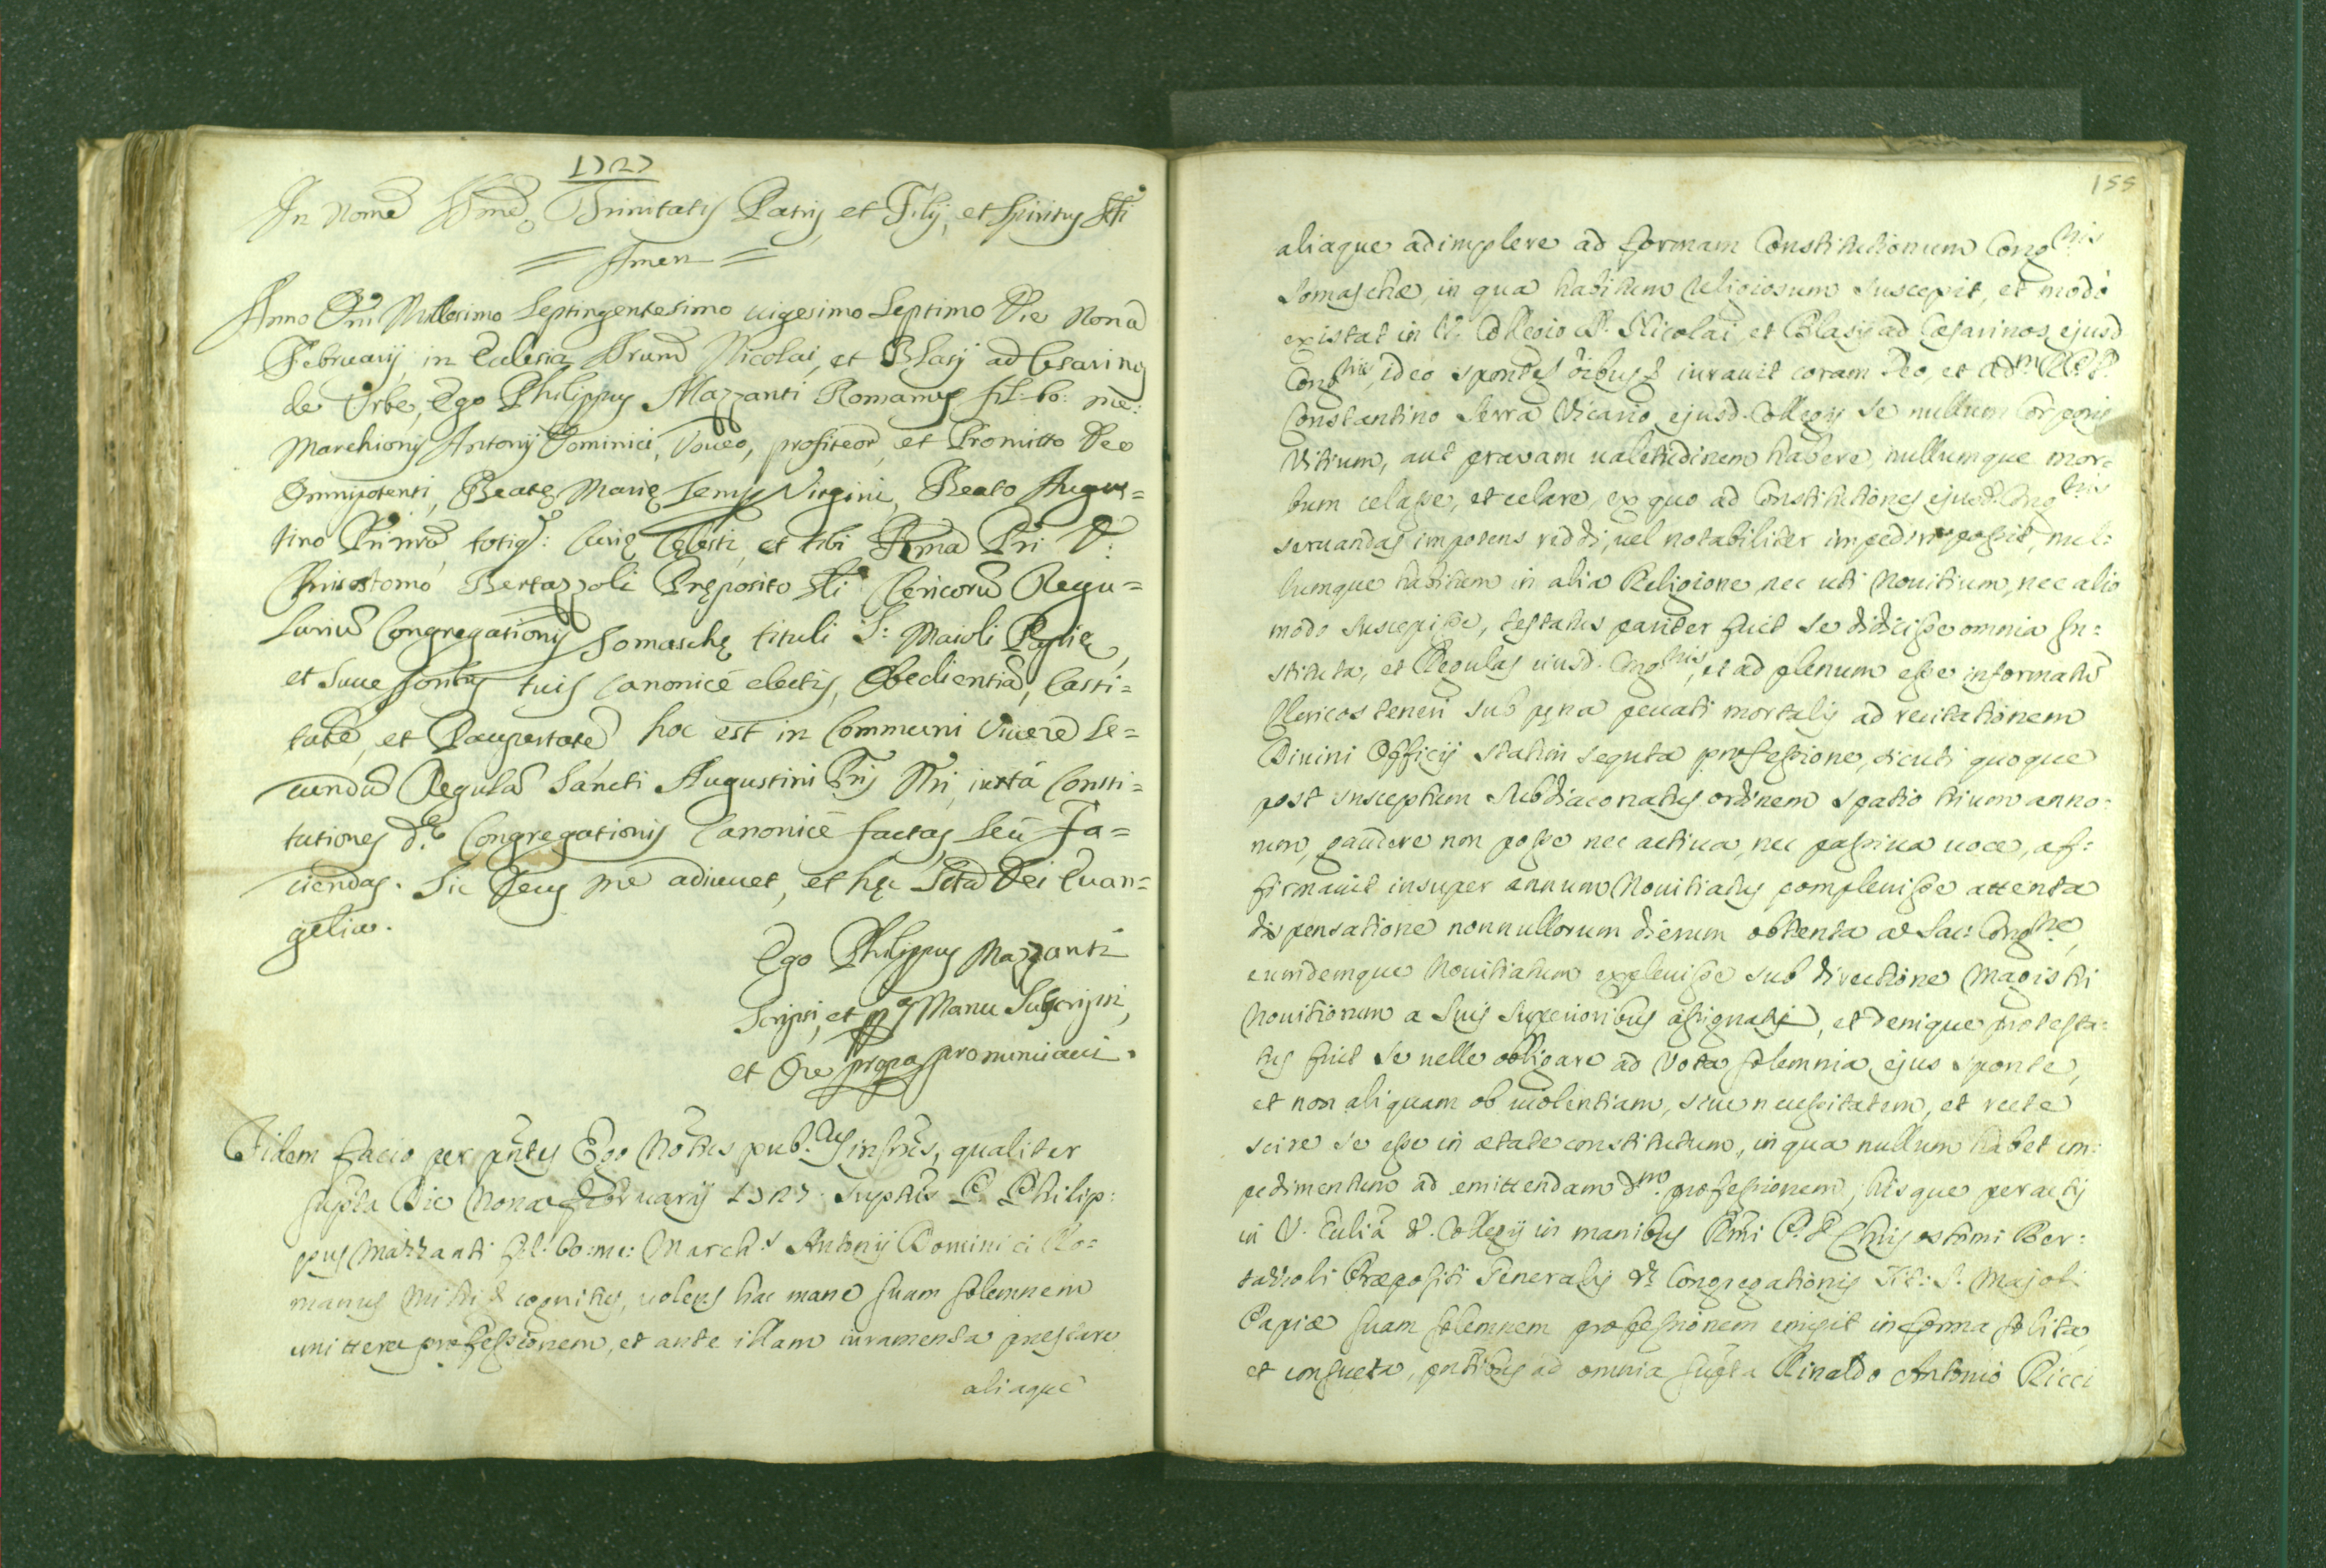 1727
In Nome SSme Trinitatis Patris, et Filij, et Spiritus Sti
= Amen =
Anno Dni Millesimo Septingentesimo uigesimo Septimo Die Nona
Februarij, in Eclesia Ssrum Nicolai, et Blasij ad Cesarinos
de Urbe, Ego Philippus Mazzanti Romanus fil: bo: me:
Marchionis Antonij Dominici, Voueo, profiteor, et Promitto Deo
Omnipotenti, Beatę Marię semp Virgini, Beato Augus=
tino totiq: Curię Cęlesti, et tibi Rmo Pri D:
Chrisostomo Bertazzoli Pręposito Gli Clericorũ Regu=
lariũ Congregationis Somaschę tituli S: Maioli Papię,
et Successoribus tuis Canonicè electis, Obedientiã, Casti=
tatẽ, et Paupertatẽ hoc est in Communi Viuere se=
cundũ Regulã Sancti Augustini Pris Nri, iuxtà Consti=
tutiones d.ę Congregationis Canonicè factas, seù Fa=
ciendas. Sic Deus me adiuuet, et hęc Scta Dei Euan=
gelia.
Ego Philippus Mazzanti
Scripsi, et pp.a Manu Subscripsi,
et Ore propio pronunciaui.
Fidem facio per pñtes Ego Notus pub.cus infrus, qualiter
supta Die Nona Februarij 1727. suptus P. Philip:
pus Mazzanti fil: bo: me: March.s Antonij Dominici Ro=
manus mihi cognitus, uolens hac mane suam solemnem
emittere professionem, et ante illam iuramenta prestare
aliaque
155
aliaque adimplere ad formam Constitutionum Congnis
Somaschæ, in qua habitum religiosum suscepit, et modò
existat in V. Collegio SS. Nicolai, et Blasij ad Cæsarinos ejusd
Congnis, ideo sponte iurauit coram Deo, et Adm R. P.
Constantino Serra Vicario ejusd. Collegij se nullum Corporis
Vitium, aut prauam ualetudinem habere, nullumque mor=
bum celasse, et celare, ex quo ad Constitutiones ejusd. Congnis
seruandas impotens reddi, uel notabiliter impediri possit, nul=
lumque habitum in alia Religione, nec uti Nouitium, nec alio
modo suscepisse, testatus pariter fuit se didicisse omnia In=
stituta, et Regulas eiusd. Congnis, et ad plenum esse informatũ
Clericos teneri sub pęna peccati mortalis ad recitationem
Diuini Officij statim sequta professione, sicuti quoque
post susceptum subdiaconatus ordinem spatio trium anno:
rum, gaudere non posse nec actiua, nec passiua uoce, af:
firmauit insuper annum Nouitiatus compleuisse attenta
dispensatione nonnullorum dierum obtenta a Sac: Congne,
eumdemque Nouitiatum expleuisse sub directione Magistri
Nouitiorum a suis Superioribus assignatis, et denique protesta:
tus fuit se uelle obligare ad Vota solemnia ejus sponte,
et non aliquam ob uiolentiam, siue necessitatem, et recte
scire se esse in ætate constitutum, in qua nullum habet im:
pedimentum ad emittendam dm. professionem, hisque peractis
in V. Eclia d. Collegij in manibus Rmi P. D. Chrisostomi Ber:
tazzoli Præpositi Generalis d. Congregationis Tit: S. Majoli
Papiæ suam solemnem professionem emisit in forma solita,
et consueta, pntibus ad omnia supta Rinaldo Antonio Ricci